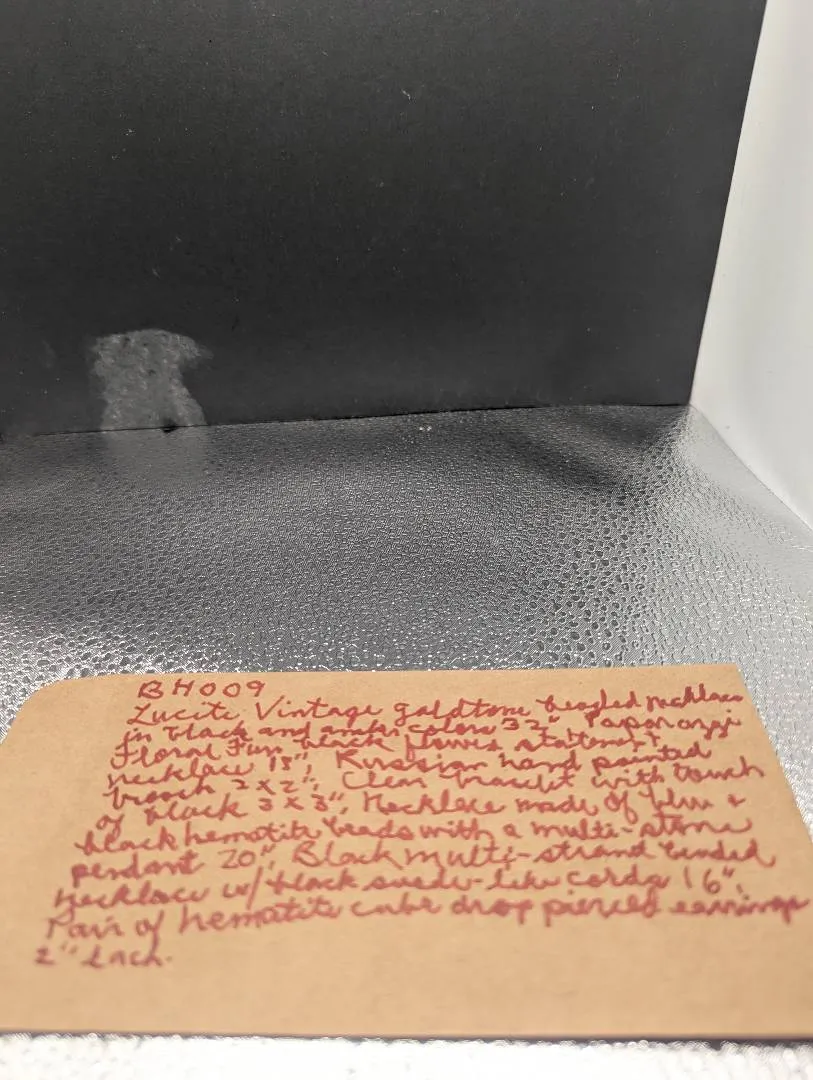 BH009
Lucite Vintage goldtone beaded necklace
in black and amber colors 32", Paparazzi
Floral Fun black flower statement
necklace 18", Russian hand painted
brooch 2 x 2", Clear bracelet with touch
of black 3 x 3", Necklace made of blue &
black hematite beads with a multi-stone
pendant 20", Black multi-strand beaded
necklace w/ black suede-like cords 16",
Pair of hematite cube drop pierced earrings
2" each.